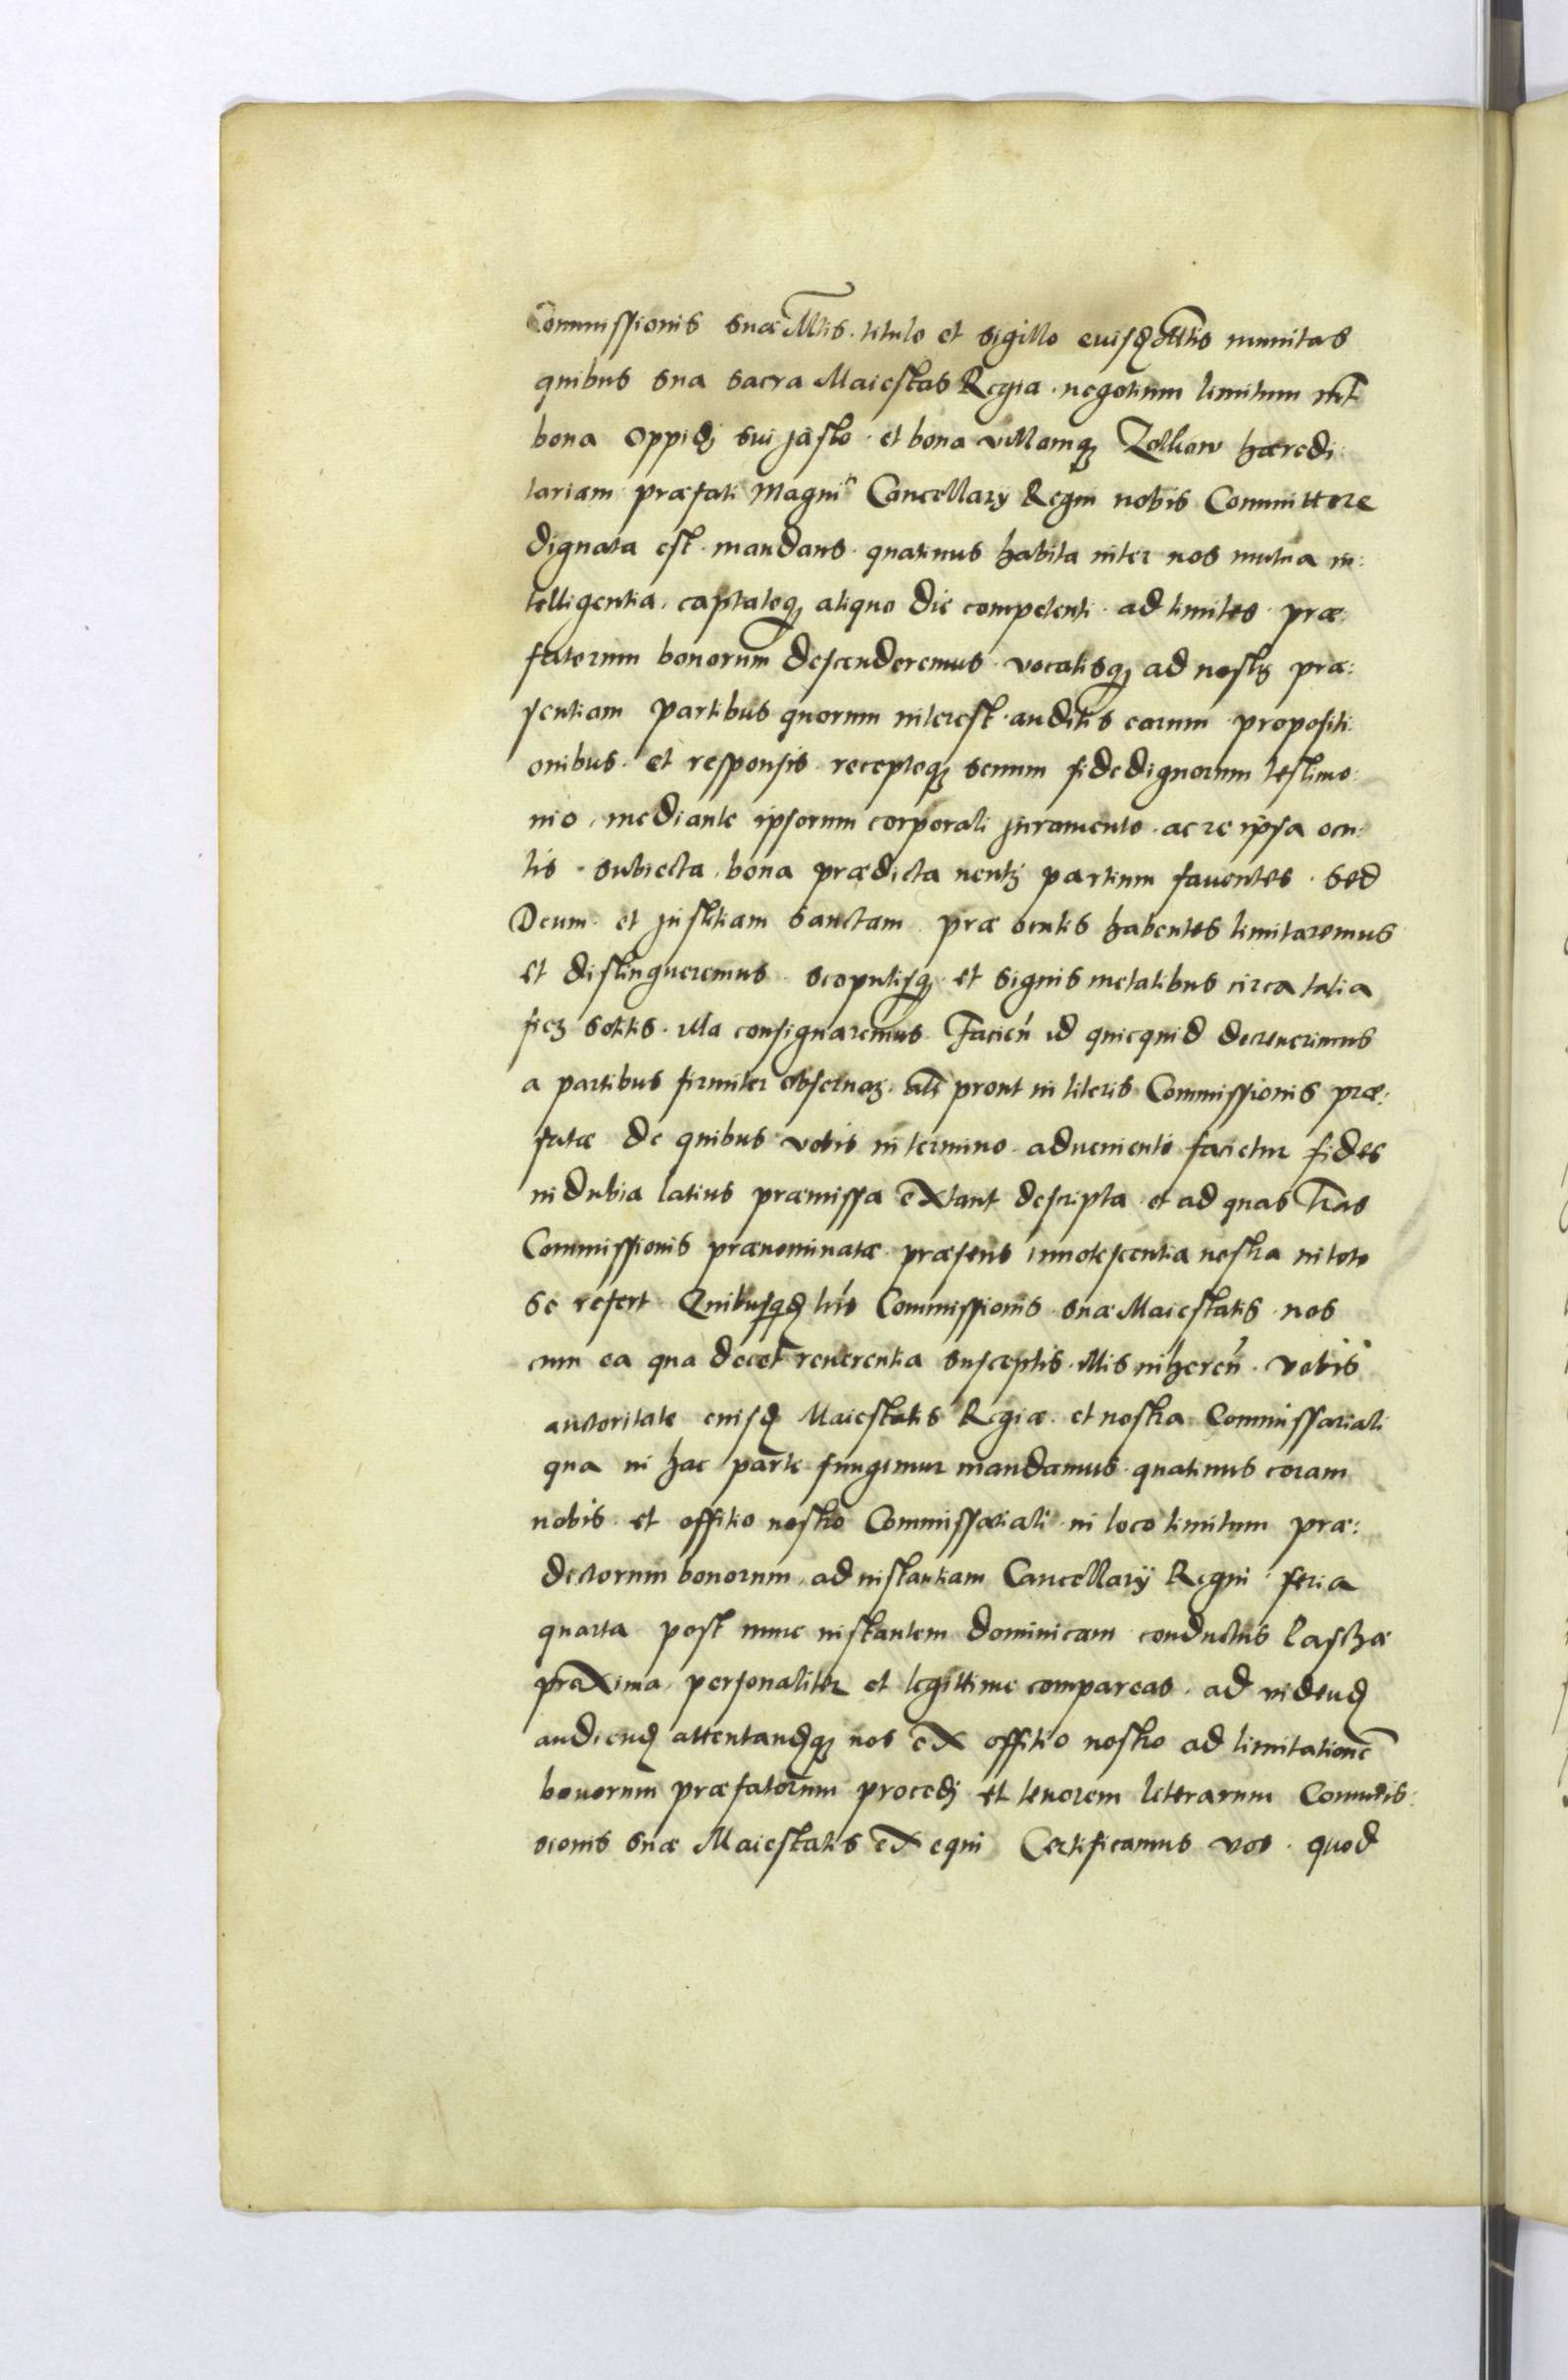 Commissionis suæ Mtis. titulo et sigillo euisdẽ Mttis munitas
quibus sua sacra Maiestas Regia. negotium limitum int̃
bona Oppidj sui Jasło. et bona villamqȝ Zolkow hæredi:
tariam præfati Magnici Cancellarÿ Regni nobis Committere
dignata est. mandans. quatinus habita inter nos mutua in:
telligentia. captatoqȝ aliquo die competenti. ad limites. præ:
fatorum bonorum descenderemus. vocatisqȝ ad nostȝ præ:
sentiam partibus quorum interest. auditis earum propositi:
onibus. et responsis. receptoqȝ senum fidedignorum testimo:
nio, mediante ipsorum corporali juramento. ac re ipsa ocu:
lis. subiecta, bona prædicta neutȝ partium fauentes. Sed
Deum. et Justitiam sanctam præ oculis habentes limitaremus
et distingueremus. scopulisqȝ et signis metalibus circa talia
fieȝ solitis. illa consignaremus. Facieñ id quicquid decreuerimus
a partibus firmiter obseruaȝ. alt̃ prout in literis Commissionis præ:
fatæ de quibus vobis in termino. adueniente farietur fides
indubia latius præmissa extant descripta. et ad quas Lr̃as
Commissionis prænominatæ. præsens innotescentia nostra in toto
se refert Quibusqdẽ lr̃is Commissionis. suæ Maiestatis. nos
cum ea qua decet reuerentia susceptis. illis inhereñ. vobis
autoritate euisdẽ Maiestatis Regiæ. et nostra Commissariali
qua in hac parte fungimur mandamus. quatinus coram
nobis. et offitio nostro Commissariali in loco limitum præ:
dictorum bonorum, ad instantiam Cancellarÿ Regni feria
quarta post nunc instantem dominicam conductus Paschæ
proxima, personaliter et legittime compareas. ad videndẽ
audiendẽ attentandẽqȝ nos ex offitio nostro ad limitationẽ
bonorum præfatorum procedj et tenorem literarum Commis:
sionis suæ Maiestatis exequi Certificamus vos. quod